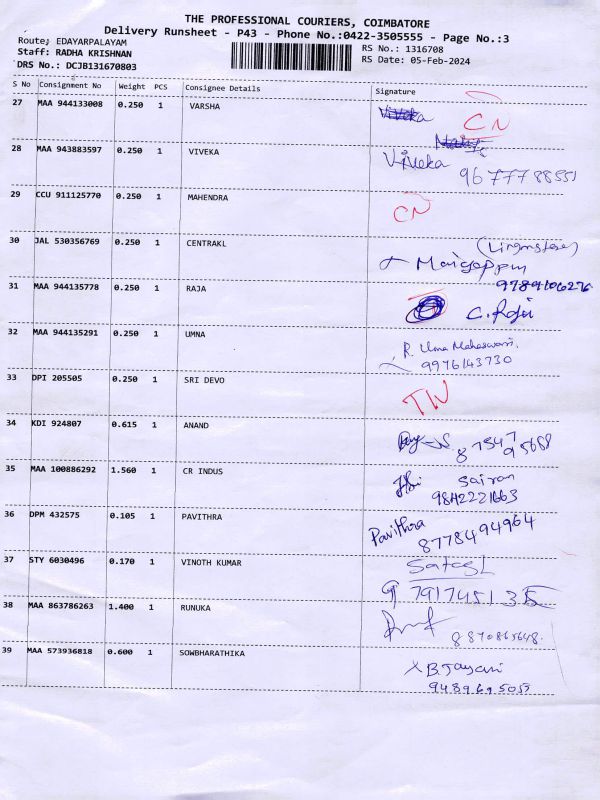 THE PROFESSIONAL COURIERS, COIMBATORE
Delivery Runsheet - P43 - Phone No.:0422-3505555 - Page No.:3
Route; EDAYARPALAYAM
Staff: RADHA KRISHNAN
DRS No.: DCJB131670803
RS No.: 1316708
RS Date: 05-Feb-2024
S No Consignment No Weight PCS Consignee Details Signature
27 MAA 944133008 0.250 1 VARSHA CN
28 MAA 943883597 0.250 1 VIVEKA Viveka
9677788551
29 CCU 911125770 0.250 1 MAHENDRA CN
30 JAL 530356769 0.250 1 CENTRAKL
9789106276
31 MAA 944135778 0.250 1 RAJA
32 MAA 944135291 0.250 1 UMNA R. Uma Maheswari.
9976143730
33 DPI 205505 0.250 1 SRI DEVO
34 KDI 924807 0.615 1 ANAND
35 MAA 100886292 1.560 1 CR INDUS Sairam
9842221663
36 DPM 432575 0.105 1 PAVITHRA Pavithra
8778494964
37 STY 6030496 0.170 1 VINOTH KUMAR
38 MAA 863786263 1.400 1 RUNUKA
8870865648.
39 MAA 573936818 0.600 1 SOWBHARATHIKA B. Jayani
9489695055